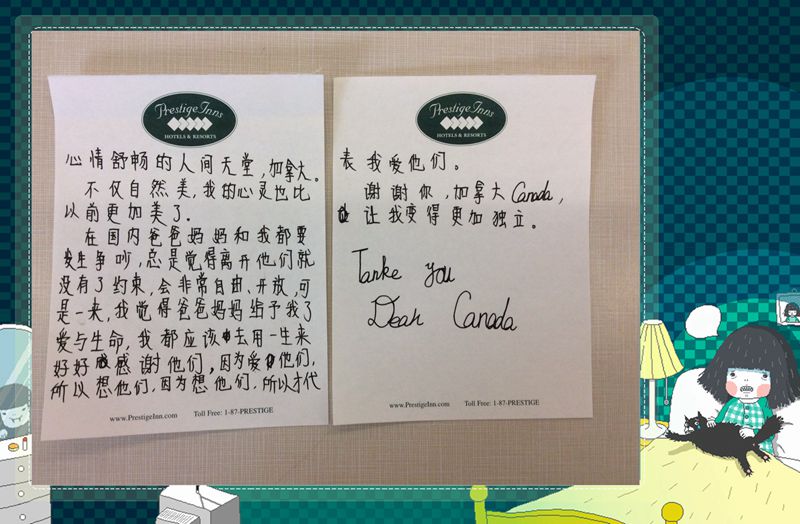 Prestige Inns
HOTELS & RESORTS
心情舒畅的人间天堂,加拿大。
不仅自然美,我的心灵也比
以前更加美了。
在国内爸爸妈妈和我都要
发生争吵,总是觉得离开他们就
没有了约束,会非常自由、开放,可
是一来,我觉得爸爸妈妈给予我了
爱与生命,我都应该去用一生来
好好感谢他们,因为爱他们,
所以想他们,因为想他们,所以才代
www.PrestigeInn.com Toll Free: 1-87-PRESTIGE
Prestige Inns
HOTELS & RESORTS
表我爱他们。
谢谢你,加拿大Canada,
让我变得更加独立。
Tanke you
Dear Canada
www.PrestigeInn.com Toll Free: 1-87-PRESTIGE